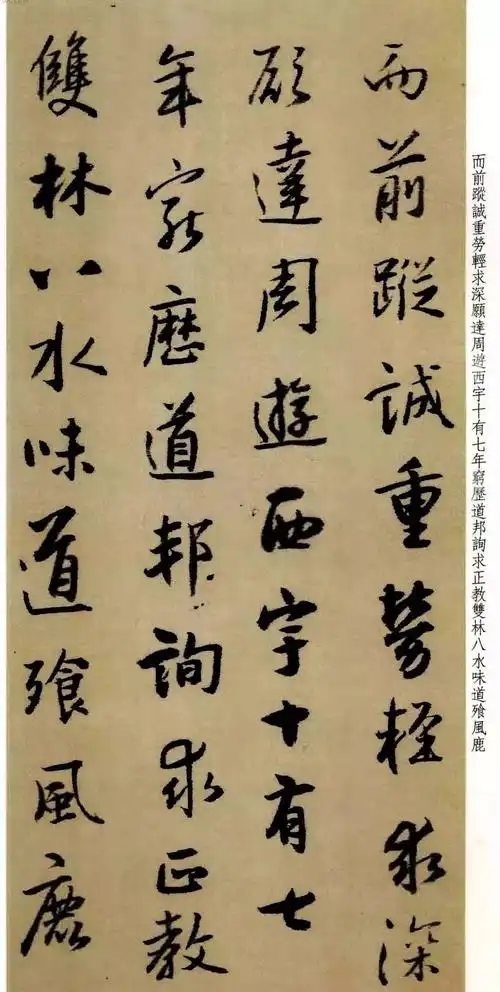 而前蹤誠重勞輕求深
願達周遊西宇十有七
年窮歷道邦詢求正教
雙林八水味道飡風鹿
而前蹤誠重勞輕求深願達周遊西宇十有七年窮歷道邦詢求正教雙林八水味道飡風鹿